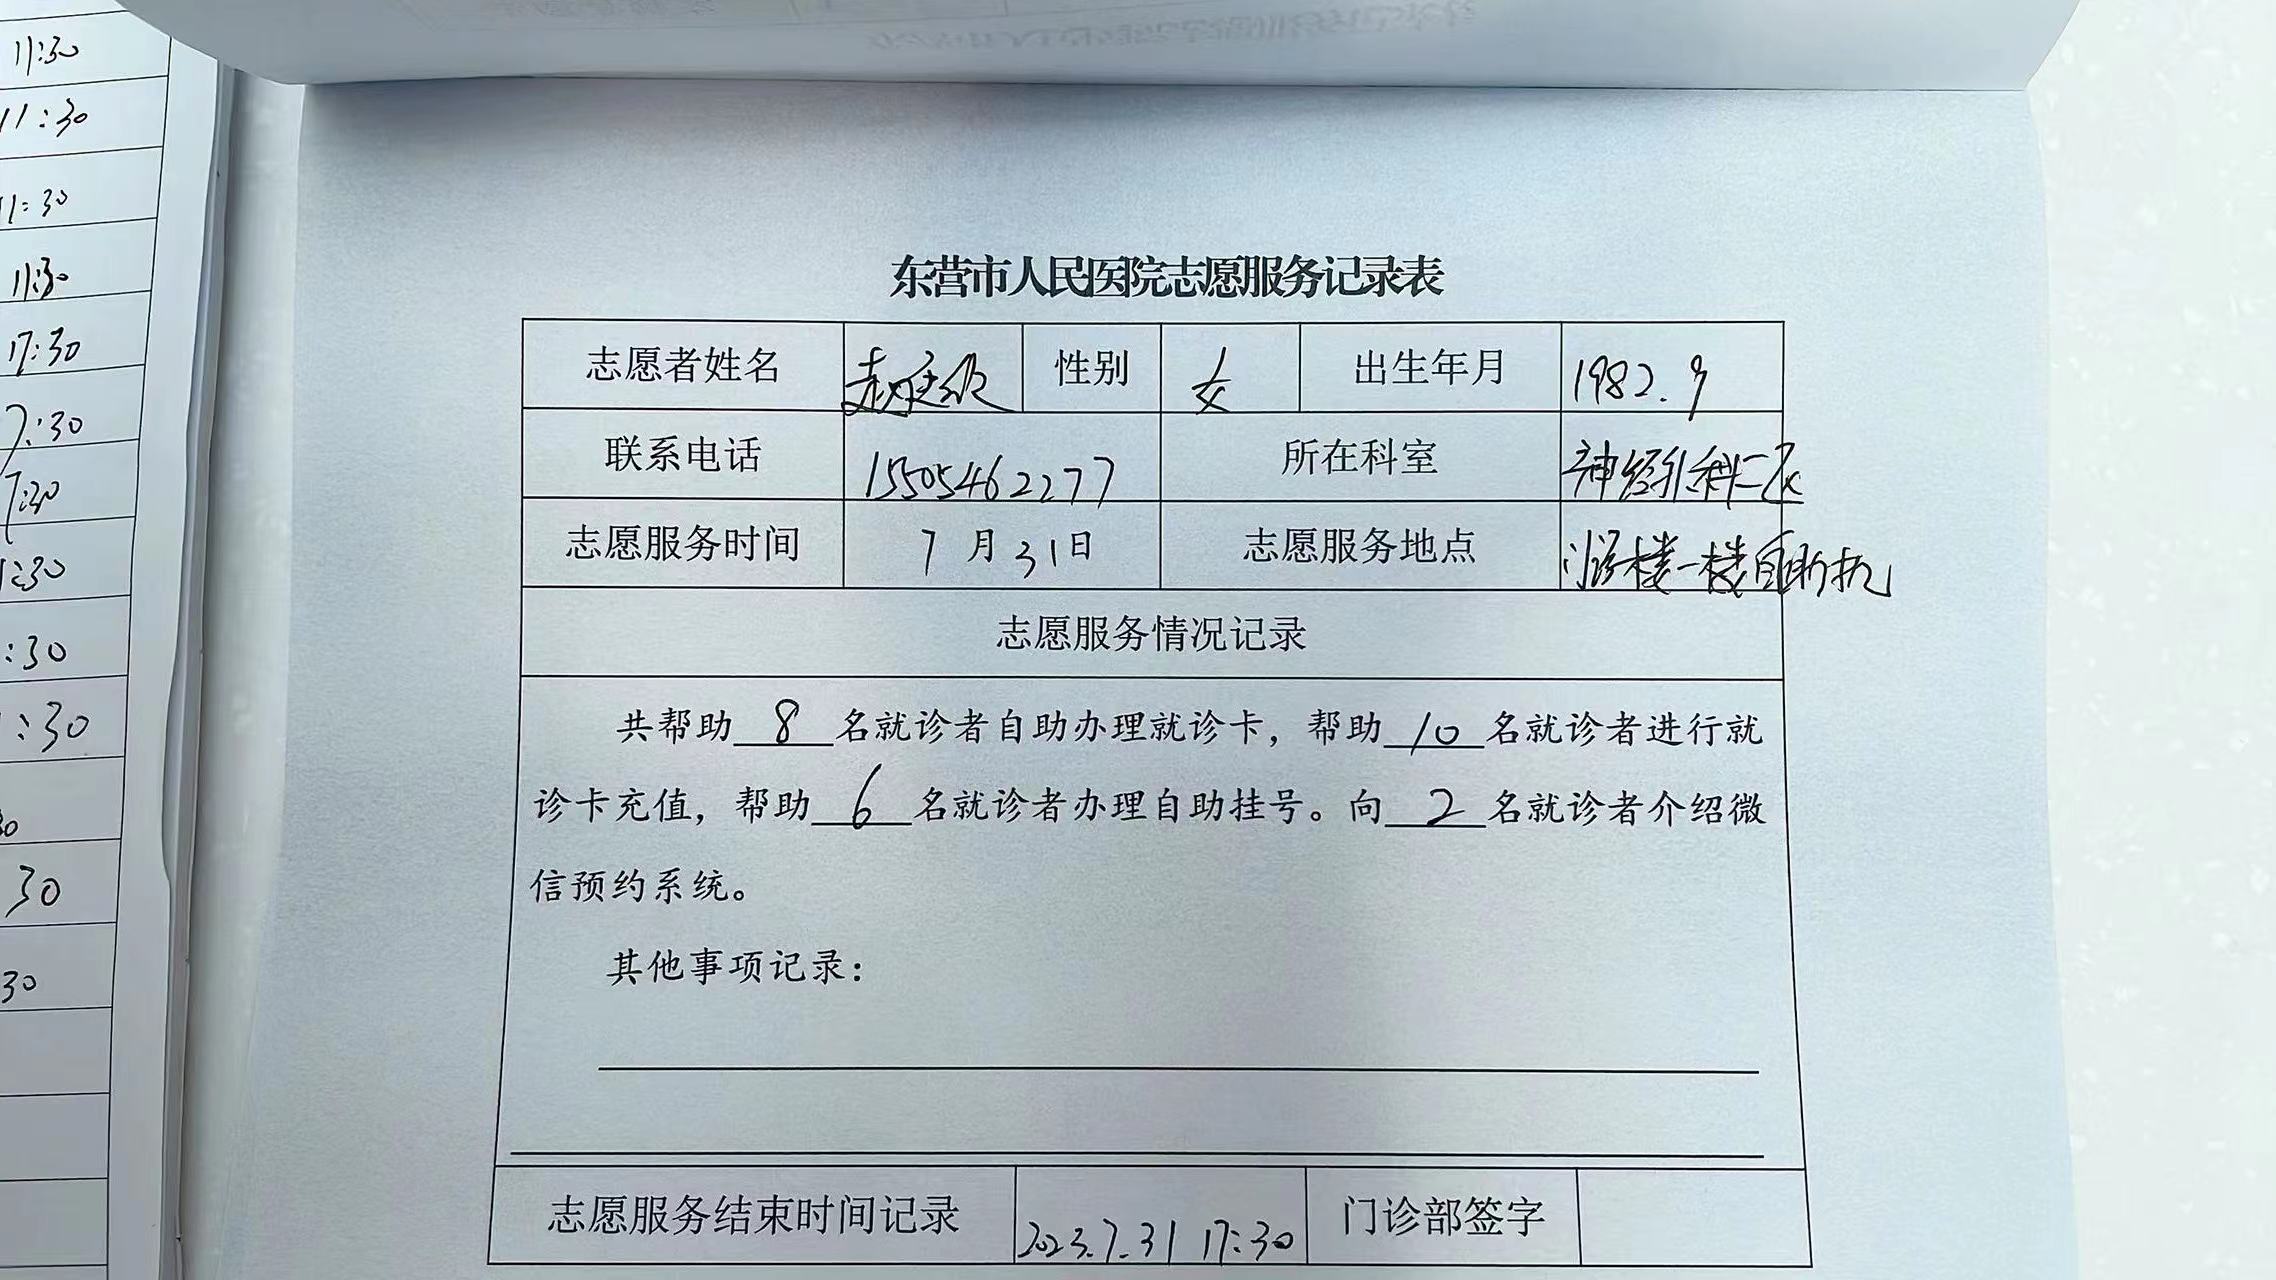 11:30
11:30
11:30
11:30
17:30
7:30
7:30
1:30
:30
1:30
30
30
30
东营市人民医院志愿服务记录表
志愿者姓名 赵 性别 女 出生年月 1982.9
联系电话 15505462277 所在科室 神经外科二区
志愿服务时间 7月31日 志愿服务地点 门诊楼一楼自助机
志愿服务情况记录
共帮助 8 名就诊者自助办理就诊卡，帮助 10 名就诊者进行就
诊卡充值，帮助 6 名就诊者办理自助挂号。向 2 名就诊者介绍微
信预约系统。
其他事项记录：
志愿服务结束时间记录 2023.7.31 17:30 门诊部签字